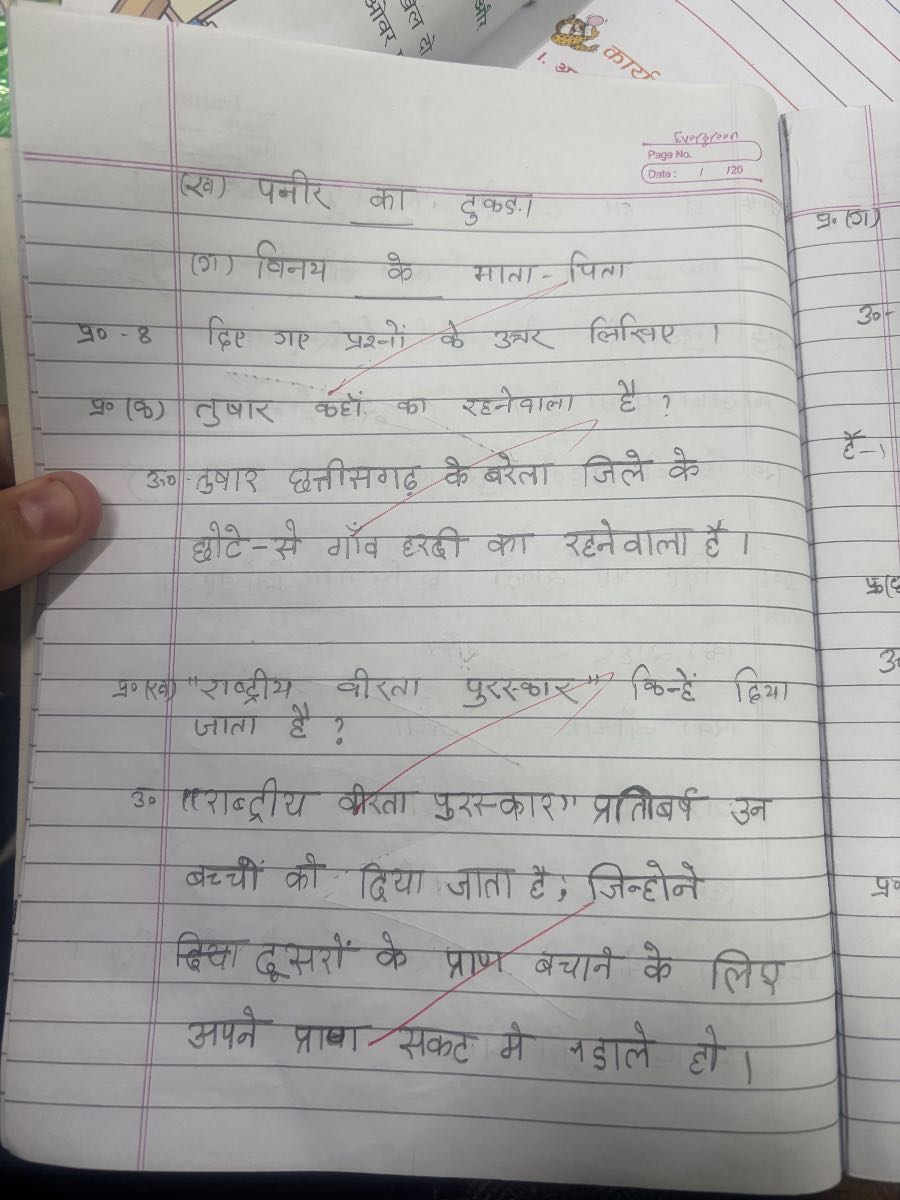 ओवर
खेल हो
और
कार्य
1. अ
Evergreen
Page No.
Date: / /20
(ख) पनीर का टुकड़ा
(ग) विनय के माता-पिता
प्र० - 8 दिए गए प्रश्नों के उत्तर लिखिए ।
प्र० (क) तुषार कहाँ का रहनेवाला है ?
उ० तुषार छत्तीसगढ़ के बरेला जिले के
छोटे-से गाँव हरदी का रहनेवाला है ।
प्र० (ख) "राष्ट्रीय वीरता पुरस्कार" किन्हें दिया
जाता है ?
उ० "राष्ट्रीय वीरता पुरस्कार" प्रतिबर्ष उन
बच्चों को दिया जाता है, जिन्होने
दूसरों के प्राण बचाने के लिए
अपने प्राण सकट मे डाले हो ।
प्र० (ग)
उ०-
हैं-
उ